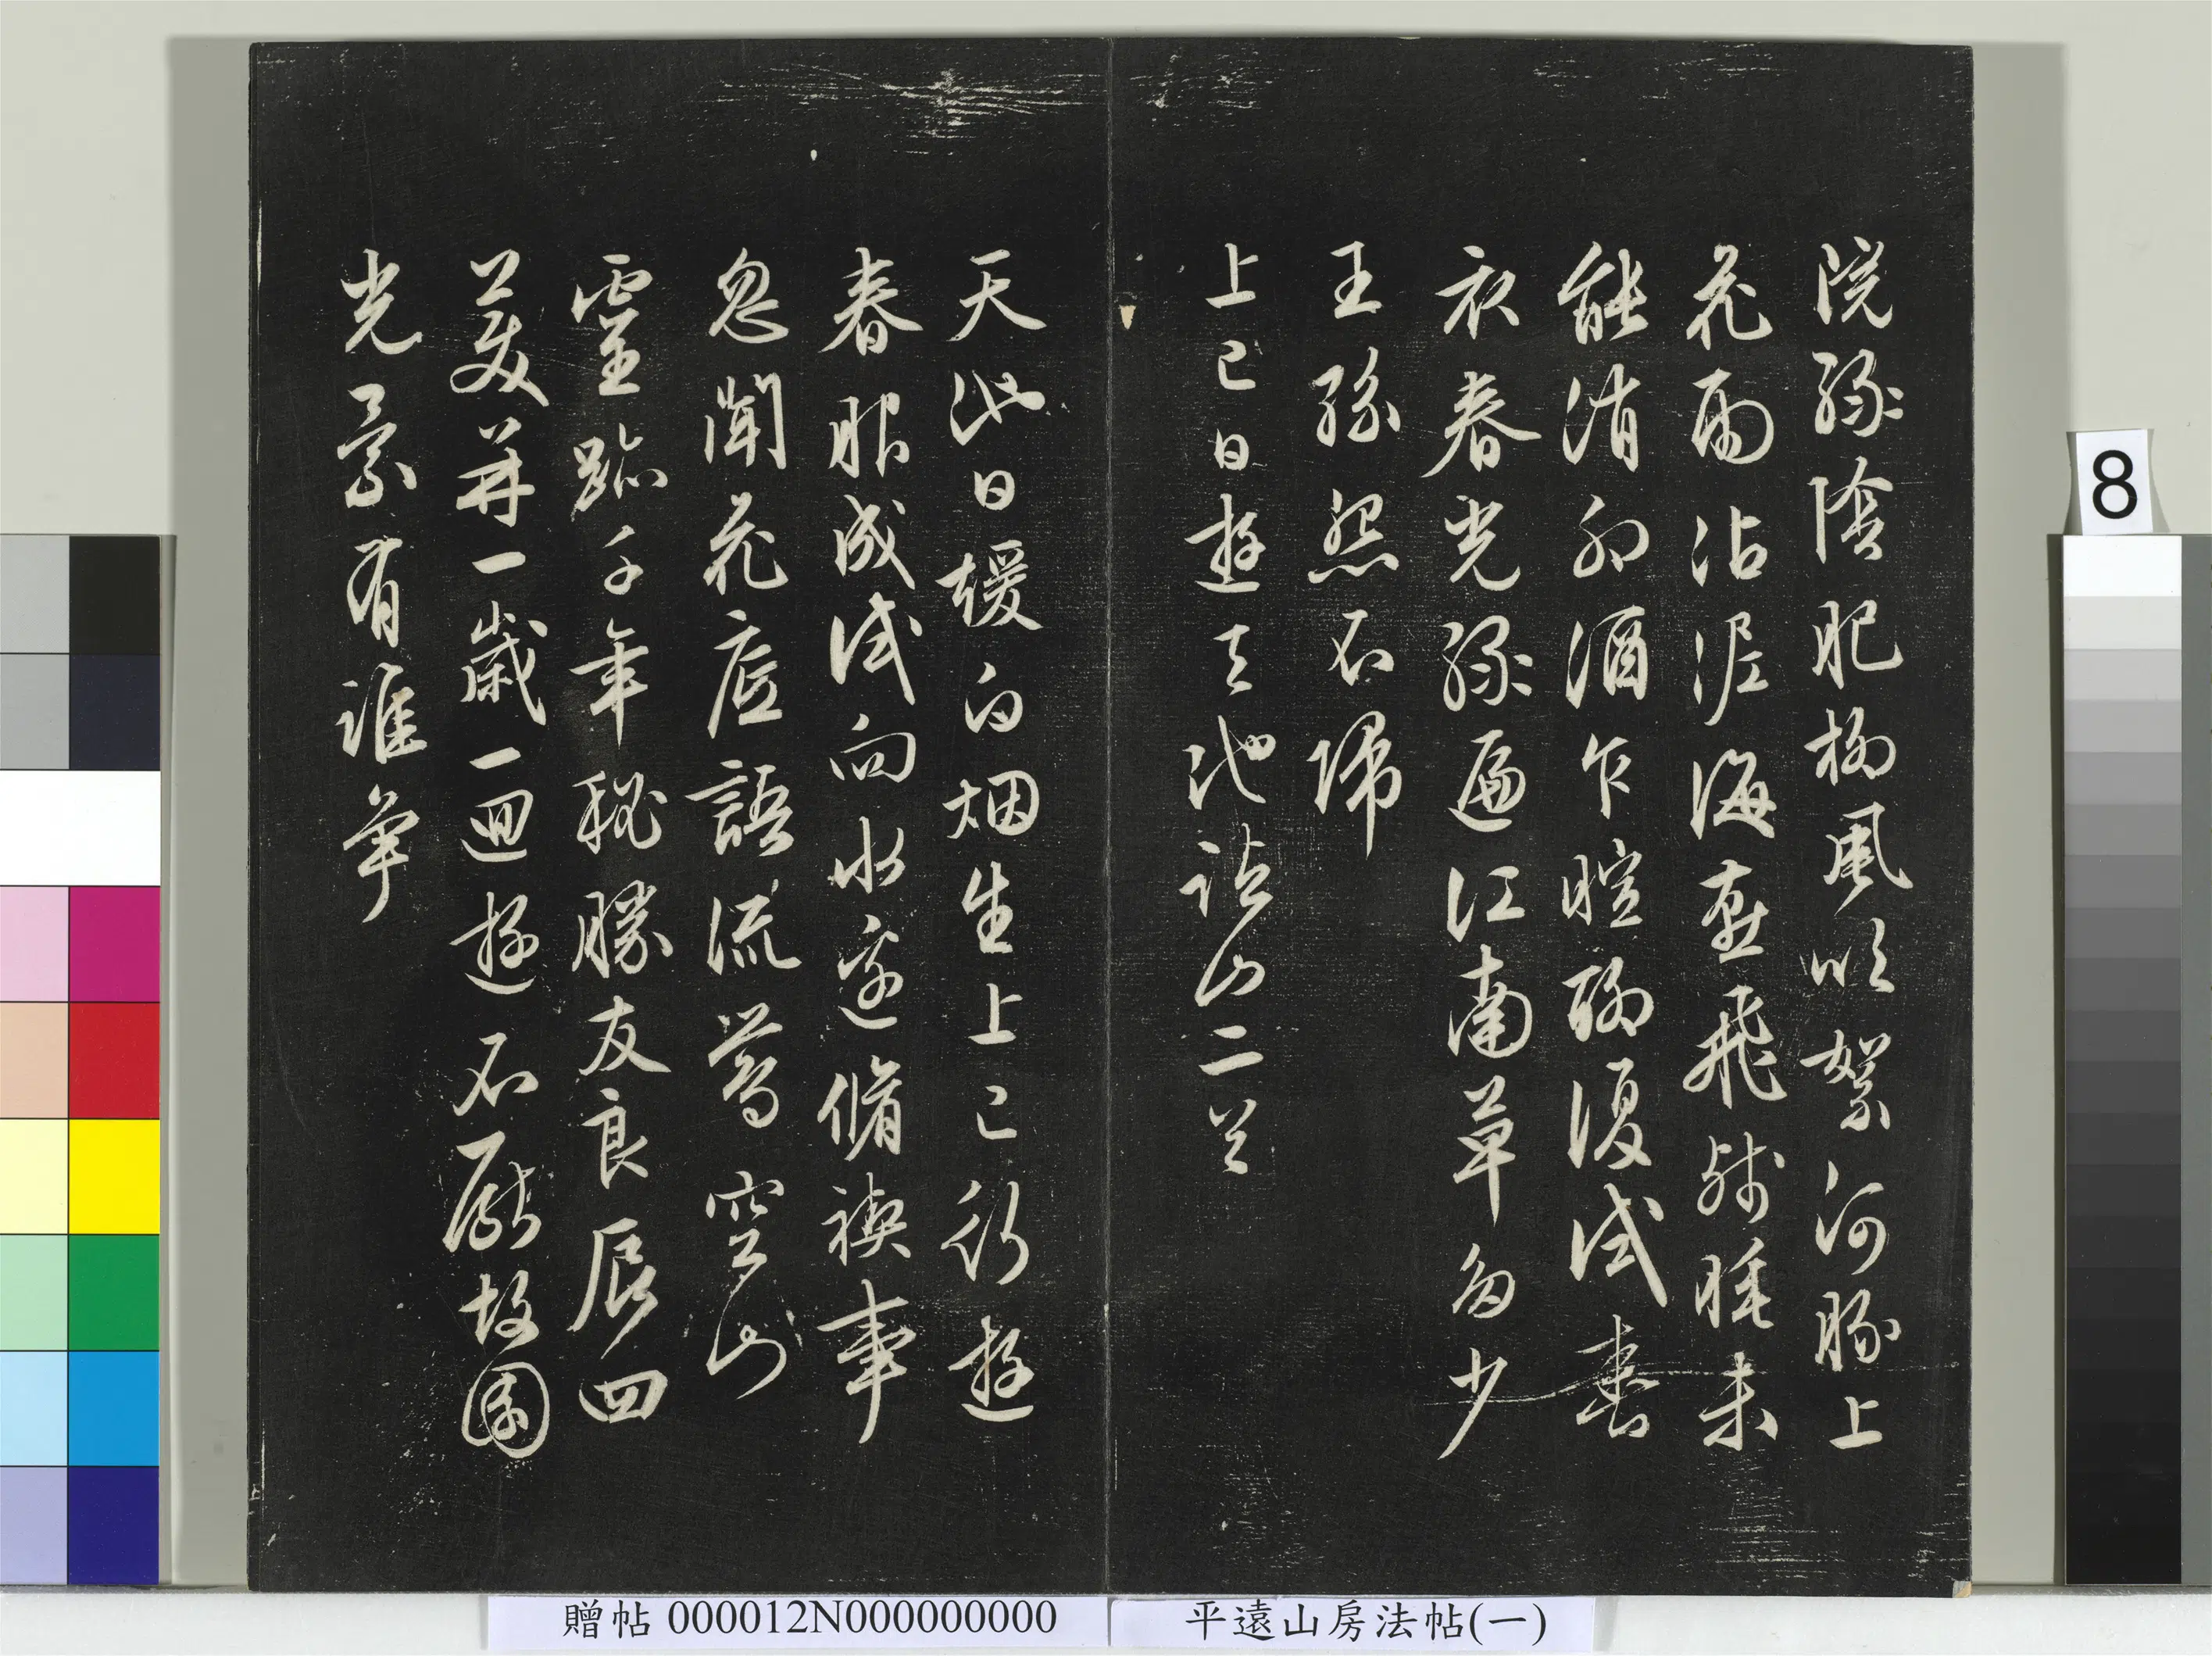 院綠陰肥柳風吹絮河豚上
花雨沾泥海燕飛殘睡未
能消卯酒乍暄聊復試春
衣春光綠遍江南草多少
王孫怨不歸
上巳日遊天池諸山二首
天池日煖白烟生上巳行遊
春服成試向水邊脩禊事
忽聞花底語流鶯空山
靈跡千年秘勝友良辰四
美并一歲一迴遊不厭故園
光景有誰爭
8
贈帖 000012N000000000
平遠山房法帖(一)